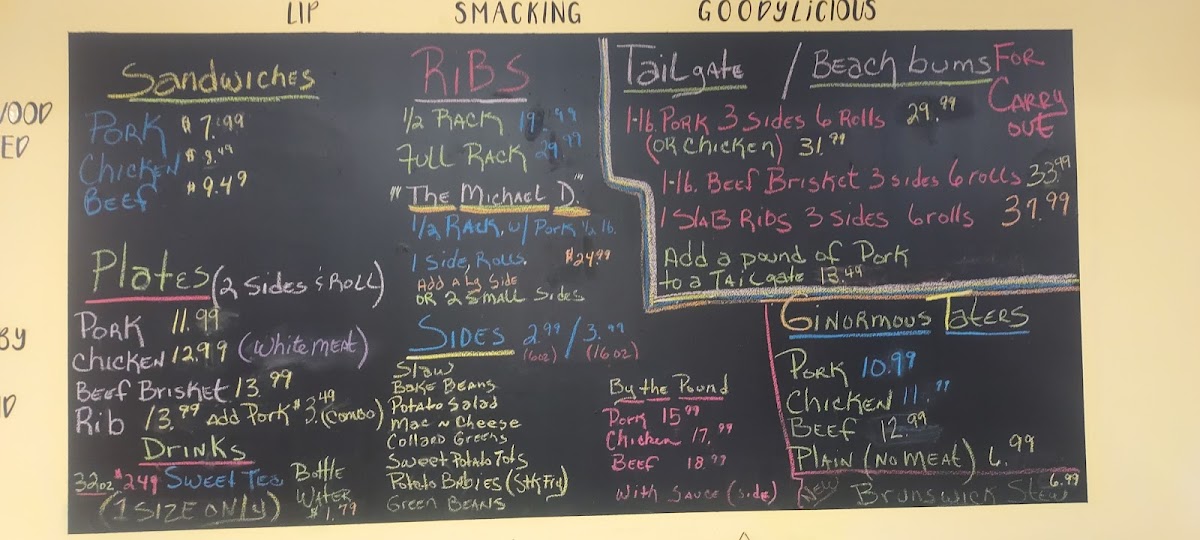 LIP SMACKING GOODYLICIOUS
WOOD
ED
BY
Sandwiches
PORK $7.99
Chicken $8.49
BEEF $9.49
Plates (2 Sides & Roll)
PORK 11.99
Chicken 12.99 (White Meat)
Beef Brisket 13.99
Rib 13.99 Add Pork $3.49 (Combo)
Drinks
32oz $2.49 Sweet Tea
(1 SIZE ONLY)
Bottle
Water
$1.79
RiBS
1/2 RACK 19.99
Full RACK 29.99
"The Michael D."
1/2 RACK, w/ Pork 1/2 lb.
1 Side, Rolls. $24.99
Add A Lg Side
OR 2 Small Sides
SIDES 2.99 / 3.99
(6oz) (16oz)
Slaw
Bake Beans
Potato Salad
Mac N Cheese
Collard Greens
Sweet Potato Tots
Potato Babies (Stk Fry)
Green Beans
By the Pound
Pork 15.99
Chicken 17.99
Beef 18.99
With Sauce (Side)
TailGate / Beach bums FOR
CARRY
OUT
1-lb. PORK 3 Sides 6 Rolls 29.99
(OR Chicken) 31.99
1-lb. Beef Brisket 3 sides 6 rolls 33.99
1 Slab Ribs 3 Sides 6 rolls 39.99
Add a pound of Pork
to a Tailgate 13.49
Ginormous Taters
PORK 10.99
Chicken 11.99
BEEF 12.99
Plain (No Meat) 6.99
(New) Brunswick Stew 6.99